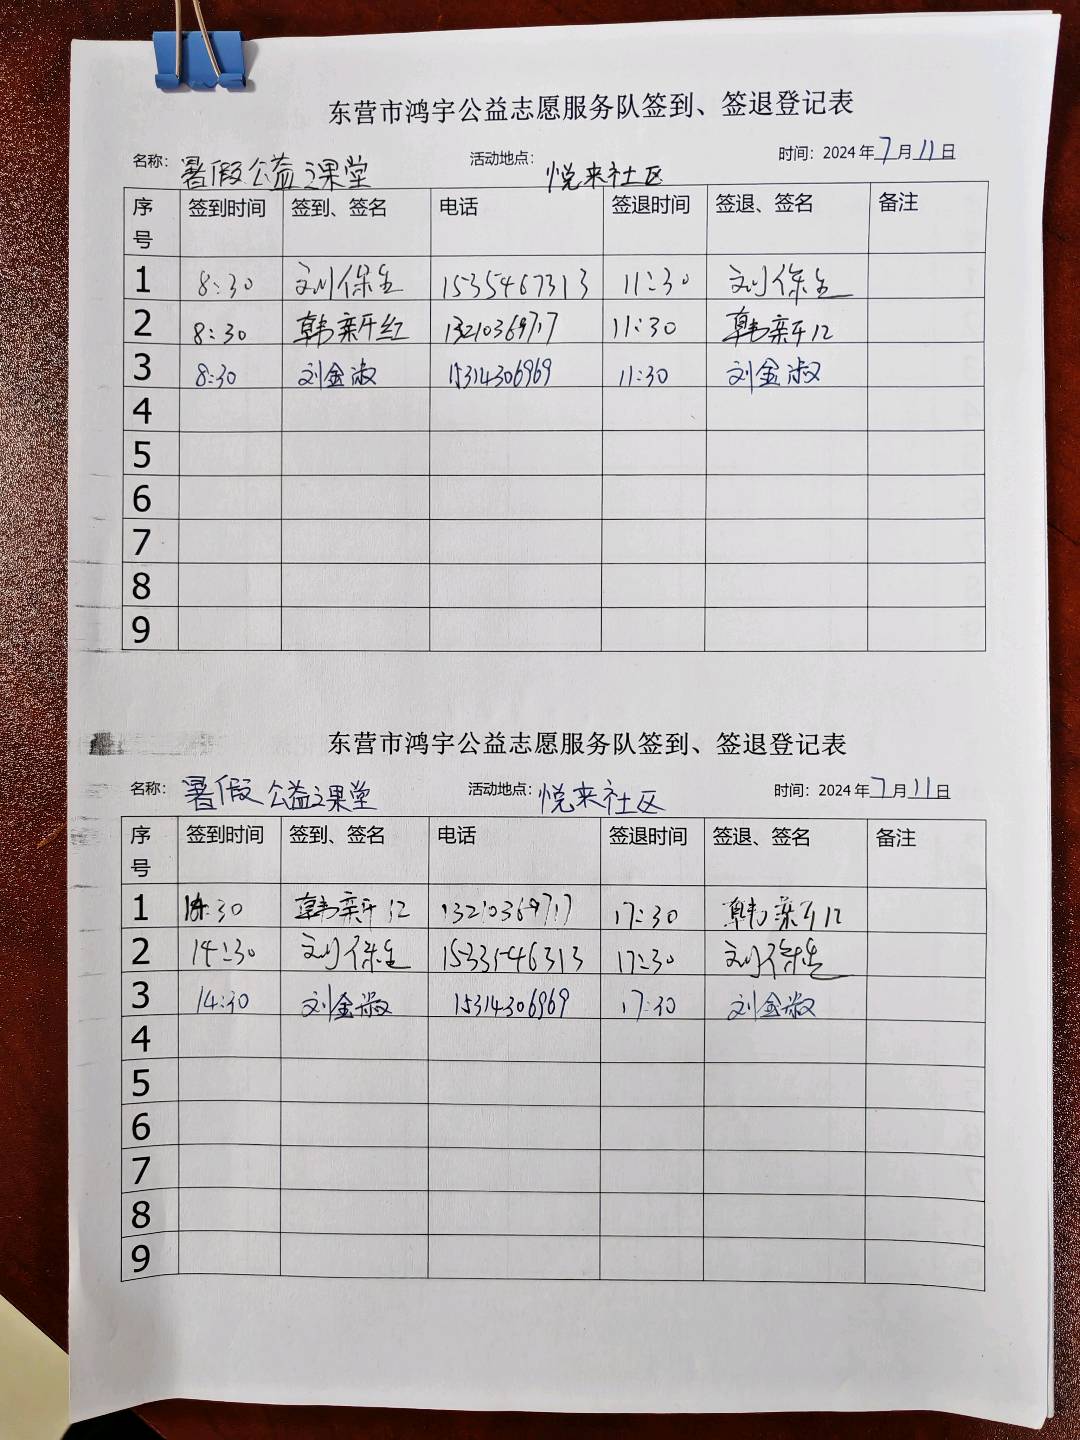 东营市鸿宇公益志愿服务队签到、签退登记表
名称： 暑假公益课堂 活动地点： 悦来社区 时间：2024年7月11日
序号 签到时间 签到、签名 电话 签退时间 签退、签名 备注
1 8:30 刘保生 15335467313 11:30 刘保生
2 8:30 韩栾开红 13210369717 11:30 韩栾开红
3 8:30 刘金淑 15314306969 11:30 刘金淑
4
5
6
7
8
9
东营市鸿宇公益志愿服务队签到、签退登记表
名称： 暑假公益课堂 活动地点： 悦来社区 时间：2024年7月11日
序号 签到时间 签到、签名 电话 签退时间 签退、签名 备注
1 14:30 韩栾开红 13210369717 17:30 韩栾开红
2 14:30 刘保生 17:30 刘保生
3 14:30 刘金淑 15314306969 17:30 刘金淑
4
5
6
7
8
9